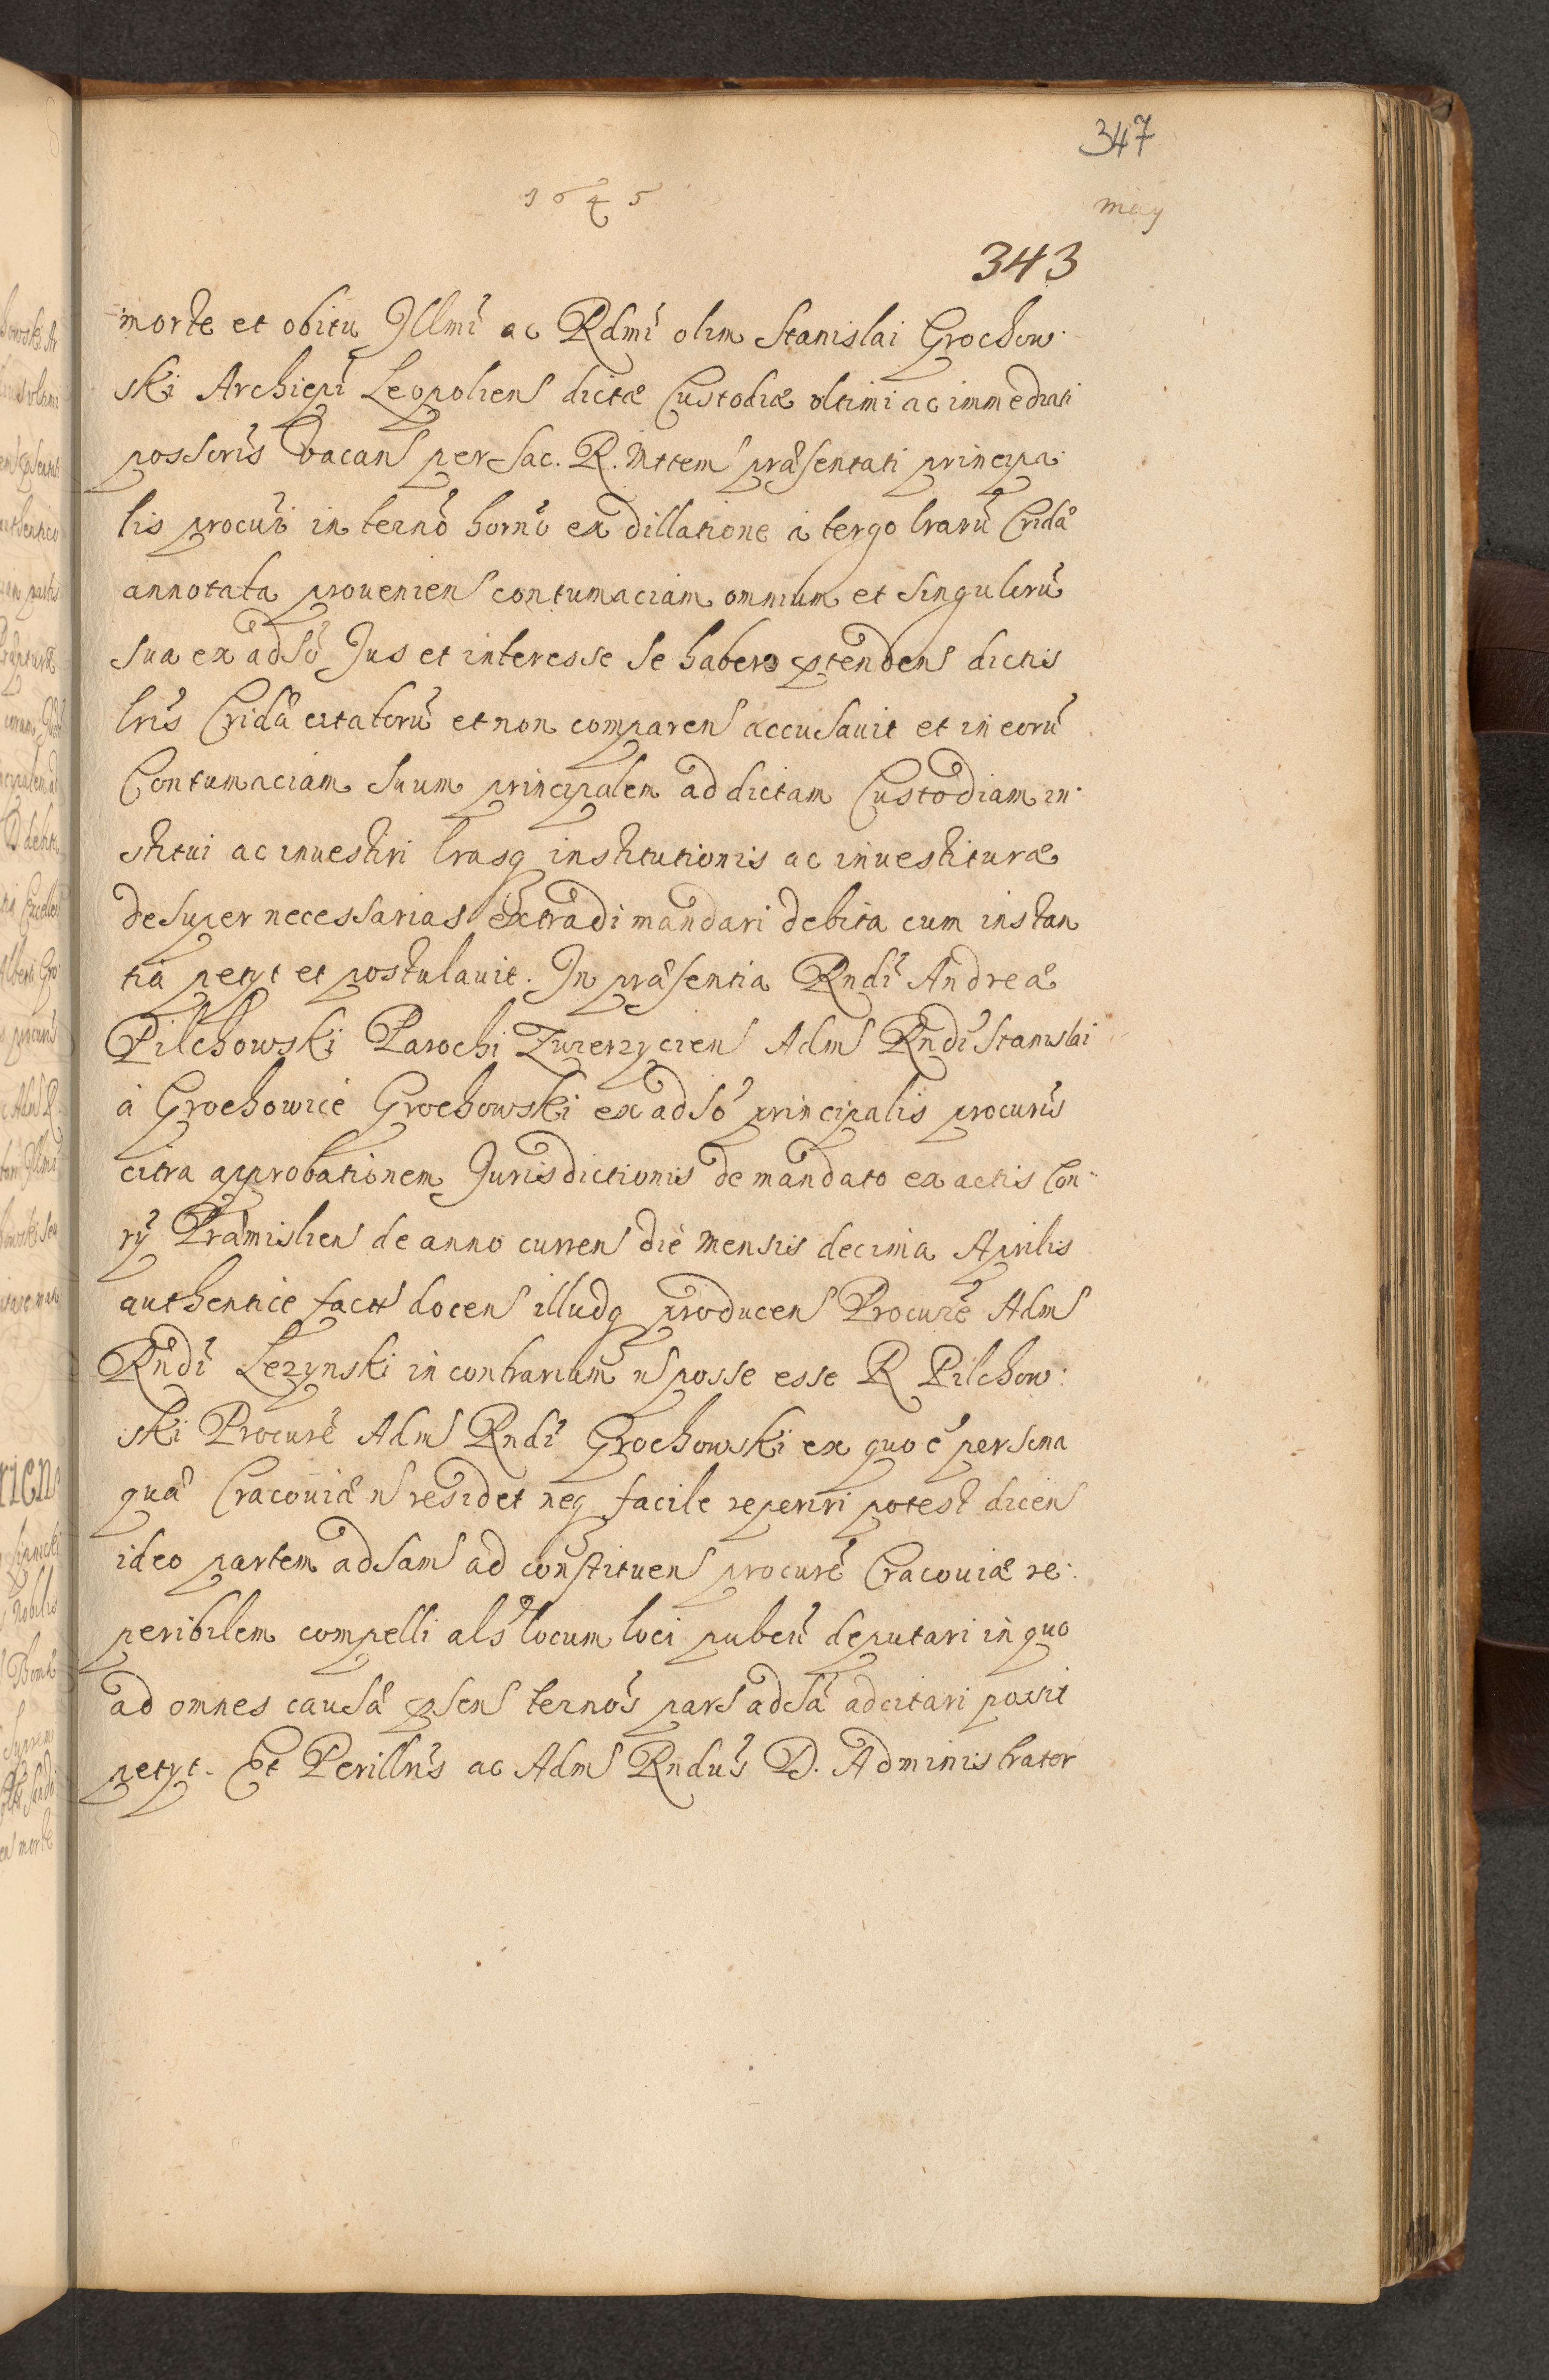 347
1645
May
343
morte et obitu Jllmi ac Rdmi olim Stanislai Grochow
ski Archiepi Leopolien dictæ Custodiæ vltimi ac immediati
possoris vacan per Sac. R. Mttem præsentati principa
lis procur in terno horno ex dillatione a tergo lrarū Cridæ
annotata prouenien contumaciam omnium et singulorū
sua ex adso Jus et interesse se habere ptenden dictis
lris Cridæ citatorū et non comparen accusauit et in eorū
Contumaciam suum principalem ad dictam Custodiam in
stitui ac inuestiri lrasq institutionis ac inuestituræ
desuper necessarias extradi mandari debita cum instan
tia petyt et postulauit. In præsentia Rndi Andreæ
Pilchowski Parochi Zwierzycien Adm Rndi Stanislai
à Grochowicė Grochowski ex adso principalis procuris
citra approbationem Jurisdictionis de mandato ex actis Con
ry Præmislien de anno curren die mensis decima Aprilis
authenticė fact docen illudq producen Procure Adm
Rndi Lezynski in contrarium n posse esse R Pilchow
ski Procure Adm Rndi Grochowski ex quo ē persona
quæ Cracouiæ n residet neq facile reperiri potest dicen
ideo partem adsam ad constituen procurē Cracouiæ re
peribilem compelli als locum loci pubcū deputari in quo
ad omnes causæ psen ternos pars adsa adcitari possit
petyt. Et Perillris ac Adm Rndus D. Administrator